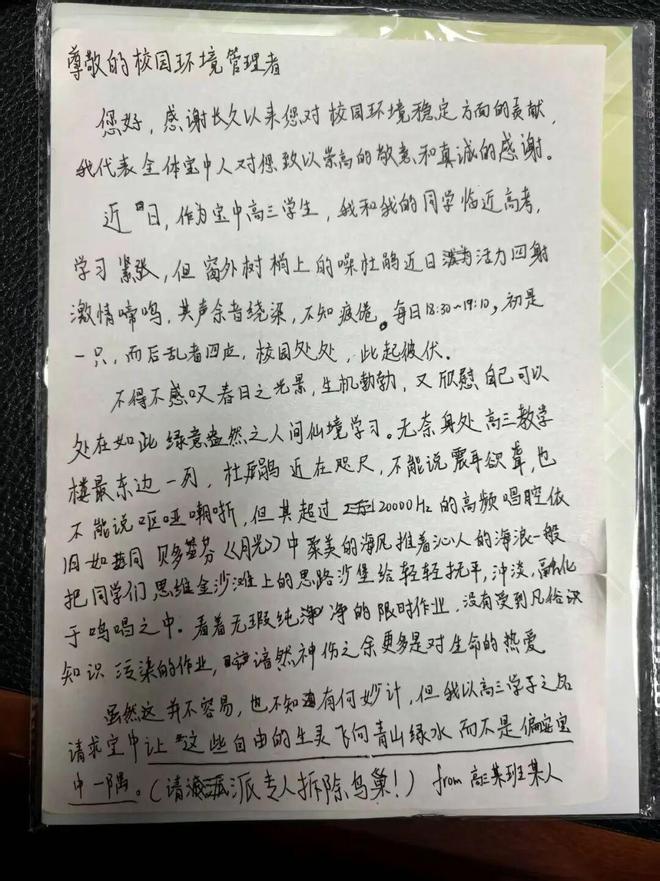 尊敬的校园环境管理者
您好，感谢长久以来您对校园环境稳定方面的贡献，
我代表全体宝中人对您致以崇高的敬意和真诚的感谢。
近日，作为宝中高三学生，我和我的同学临近高考，
学习紧张，但窗外树梢上的噪杜鹃近日活力四射
激情啼鸣，其声余音绕梁，不知疲倦。每日18:30~19:10，初是
一只，而后乱者四应，校园处处，此起彼伏。
不得不感叹春日之光景，生机勃勃，又欣慰自己可以
处在如此绿意盎然之人间仙境学习。无奈身处高三教学
楼最东边一列，杜鹃近在咫尺，不能说震耳欲聋，也
不能说呕哑嘲哳，但其超过20000Hz的高频唱腔依
旧如同贝多芬《月光》中聚美的海风推着沁人的海浪一般
把同学们思维金沙滩上的思路沙堡给轻轻抚平，冲淡，融化
于鸣唱之中。看着无瑕纯净的限时作业，没有受到凡俗
知识污染的作业，谙然神伤之余更多是对生命的热爱
虽然这并不容易，也不知有何妙计，但我以高三学子之名
请求宝中让这些自由的生灵飞向青山绿水而不是偏安宝
中一隅。（请派专人拆除鸟巢！）from高三某班某人